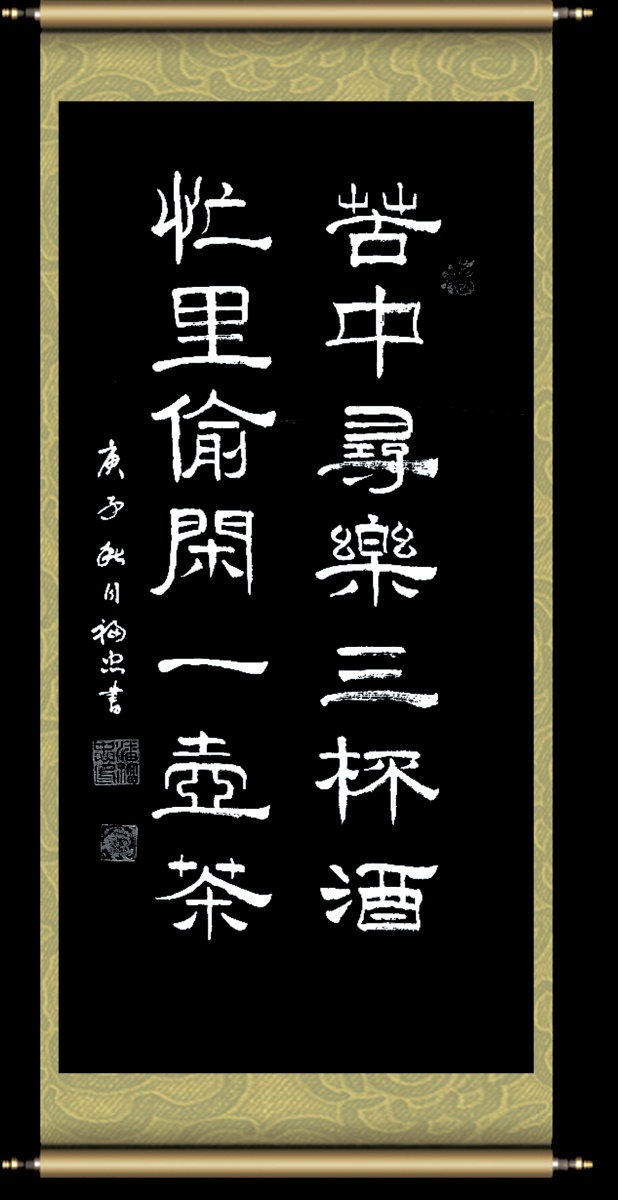 苦中尋樂三杯酒
忙里偷閑一壺茶
庚子秋月福忠書